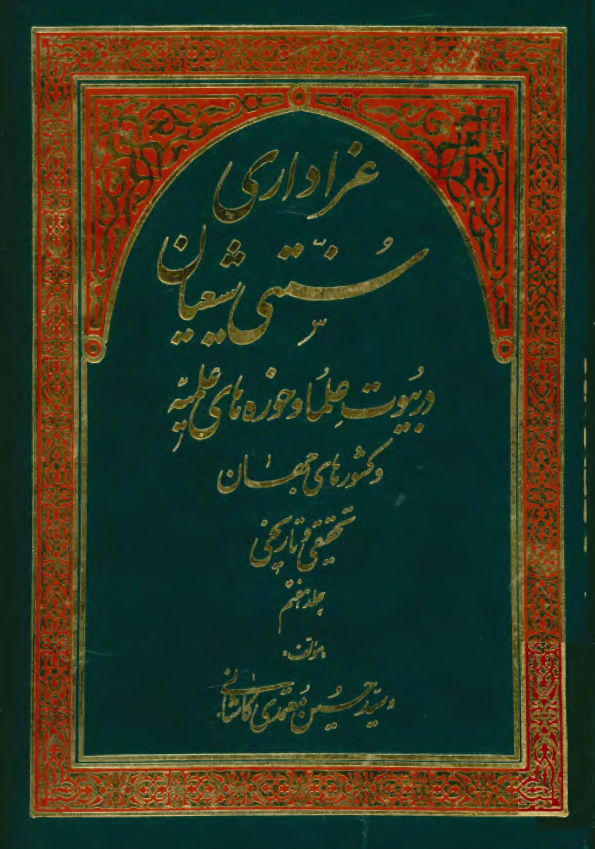 عزاداری
سُنّتی شیعیان
در بیُوت عِلمُا و حوزه های علمیّه
و کشورهای جهان
تحقیقی و تاریخی
جلد هفتم
مؤلف:
سیّد حسین معتمدی کاشانی